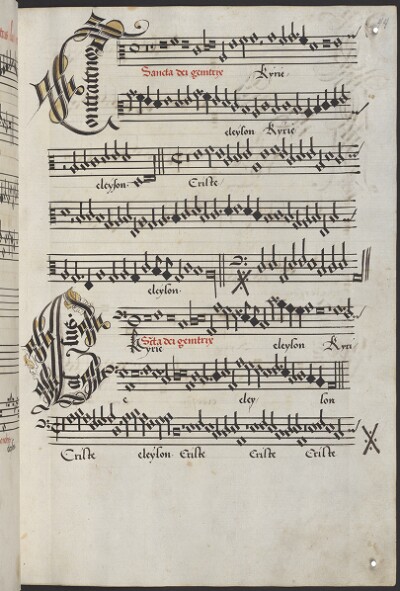 Contratenor
Sancta dei genitrix Kyrie
eleyson Kyrie
eleyson Criste
eleyson
Sancta dei genitrix
Kyrie eleyson Kyri
e eley son
Criste eleyson Criste Criste Criste